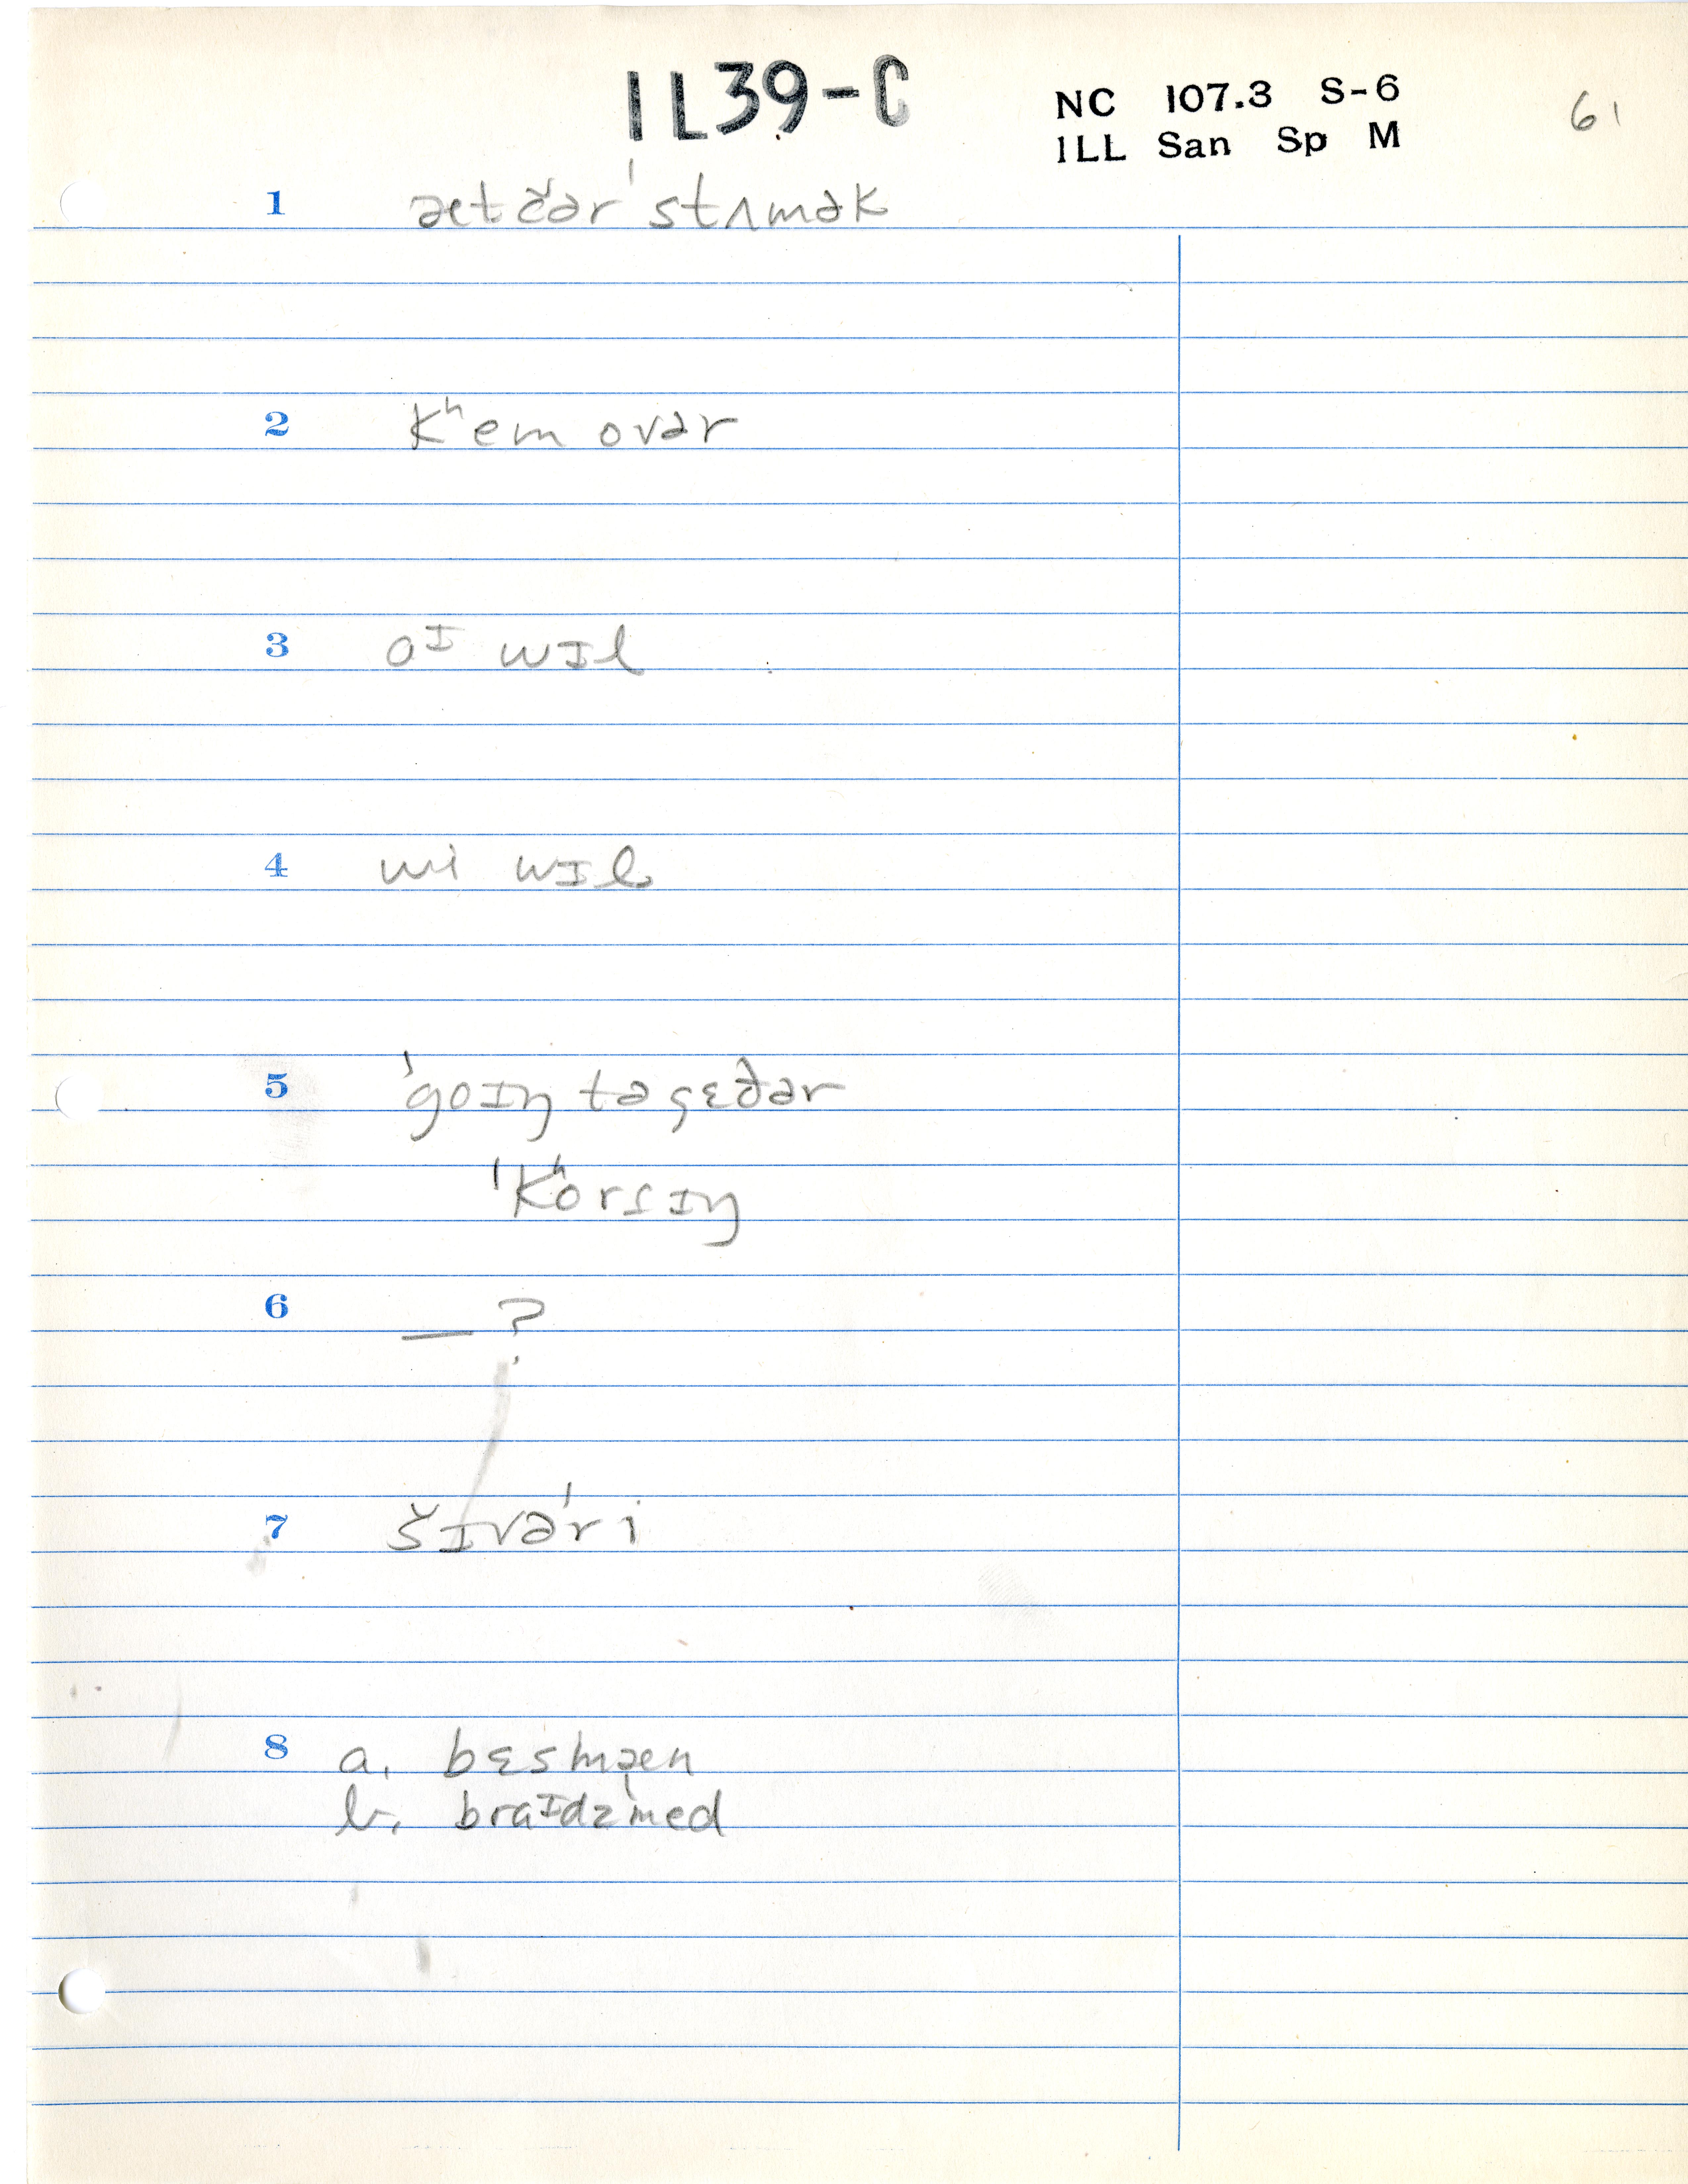 IL39-C
NC 107.3 S-6
ILL San Sp M
61
1 ætčər ˈstʌmək
2 kʰem ovər
3 aᴵ wɪl
4 wi wɪl
5 ˈgoɪŋ təgɛðər
ˈkʰorsɪŋ
6 — ?
7 šɪvəˈri
8 a. bɛsmæn
b. braᴵdzˈmed